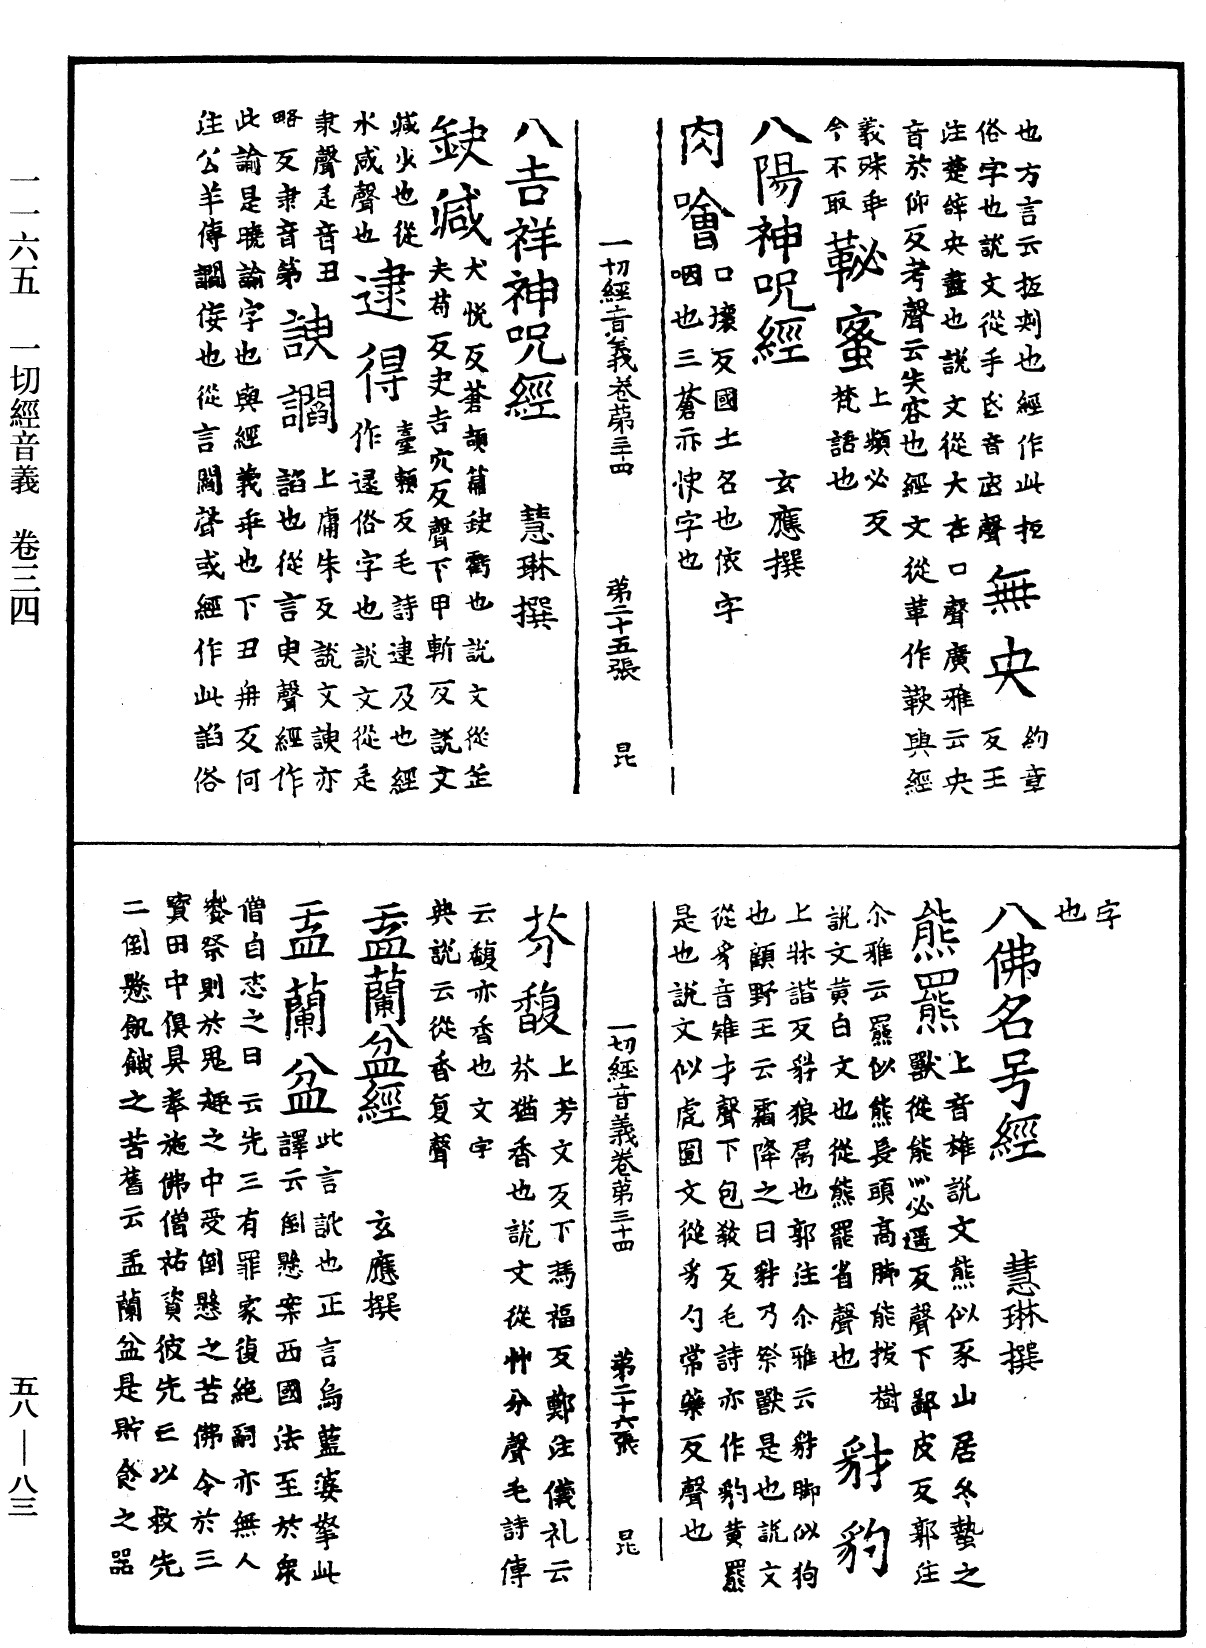 也方言云抵刺也經作此拒
俗字也說文從手氐音𢓜聲
無央
約章
反王
注楚辞央盡也說文從大在口聲廣雅云央
音於仰反考聲云失容也經文從革作鞅與經
義殊乖
今不取
䩛蜜
上頻必反
梵語也
八陽神呪經
玄應撰
肉噲
口壞反國土名也依字
咽也三蒼亦快字也
一切經音義卷苐三十四
第二十五張
昆
八吉祥神呪經
慧琳撰
缺減
犬悅反蒼頡篇缺虧也說文從㱏
夬苟反史吉穴反聲下甲斬反說文
減少也從
水咸聲也
逮得
臺頼反毛詩逮及也經
作逯俗字也說文從辵
隶聲辵音丑
略反隶音第
諛讇
上庸朱反說文諛亦
謟也從言臾聲經作
此諭是曉諭字也與經義乖也下丑冉反何
注公羊傳讇佞也從言閻聲或經作此謟俗
字
也
八佛名号經
慧琳撰
熊羆
上音雄說文熊似豕山居冬蟄之
獸從能灬必遥反聲下鄙皮反郭注
尒雅云羆似熊長頭高脚能拔樹
說文黃白文也從熊罷省聲也
豺豹
上牀諧反豺狼屬也郭注尒雅云豺脚似狗
也顧野王云霜降之日豺乃祭獸是也說文
從豸音雉才聲下包教反毛詩亦作豹黃羆
是也說文似虎圓文從豸勺常藥反聲也
一切經音義卷苐三十四
苐二十六張
昆
芬馥
上芳文反下馮福反鄭注儀礼云
芬猶香也說文從艸分聲毛詩傳
云馥亦香也文字
典說云從香复聲
盂蘭盆經
玄應撰
盂蘭盆
此言訛也正言烏藍婆拏此
譯云倒懸案西國法至於衆
僧自恣之日云先亡有罪家復絶嗣亦無人
饗祭則於鬼趣之中受倒懸之苦佛令於三
寳田中俱具奉施佛僧祐資彼先亡以救先
亡倒懸飢餓之苦舊云盂蘭盆是貯食之器
一一六五　一切經音義　卷三四
五八——八三